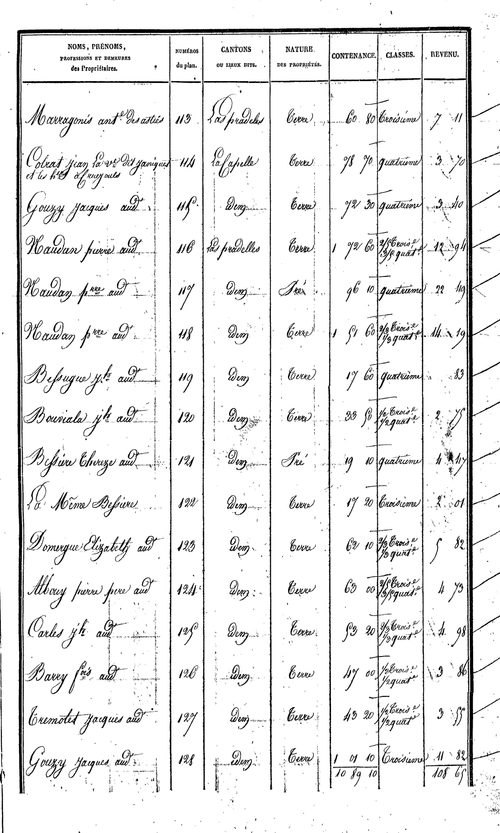 NOMS, PRÉNOMS, PROFESSIONS ET DEMEURES des Propriétaires. NUMÉROS du plan. CANTONS OU LIEUX DITS. NATURE DES PROPRIÉTÉS. CONTENANCE. CLASSES. REVENU.
Marragonis ant.e 113 Las pradeles Terre 60 80 Troisième 7 11
Cotras jean La v.ve dit 114 La Capelle Terre 78 70 quatrième 3 70
et les
Gouzy jacques aud 115 idem Terre 72 30 quatrième 3 40
Naudan pierre aud 116 Las pradelles Terre 1 72 60 2/5 Trois.e 3/5 quat.e 12 94
Naudan p.rre aud 117 idem Pré 96 10 quatrième 22 49
Naudan p.rre aud 118 idem Terre 1 51 60 2/3 Trois.e 1/3 quat.e 14 19
Bessugue j.h aud 119 idem Terre 17 60 quatrième 83
Bouviala j.h aud 120 idem Terre 33 50 1/2 Trois.e 1/2 quat.e 2 75
Bessiere Thereze aud 121 idem Pré 19 10 quatrième 4 47
La Même Bessiere 122 idem Terre 17 20 Troisième 2 01
Domergue Elizabeth aud 123 idem Terre 62 10 2/3 Trois.e 1/3 quat.e 5 82
Albouy pierre pere aud 124 idem Terre 63 00 2/5 Trois.e 3/5 quat.e 4 73
Carles j.h aud 125 idem Terre 53 20 2/3 Trois.e 1/3 quat.e 4 98
Barry f.ois aud 126 idem Terre 47 00 1/2 Trois.e 1/2 quat.e 3 86
Tremolet jacques aud 127 idem Terre 43 20 1/2 Trois.e 1/2 quat.e 3 55
Gouzy jacques aud 128 idem Terre 1 01 10 Troisième 11 82
10 89 10 108 65